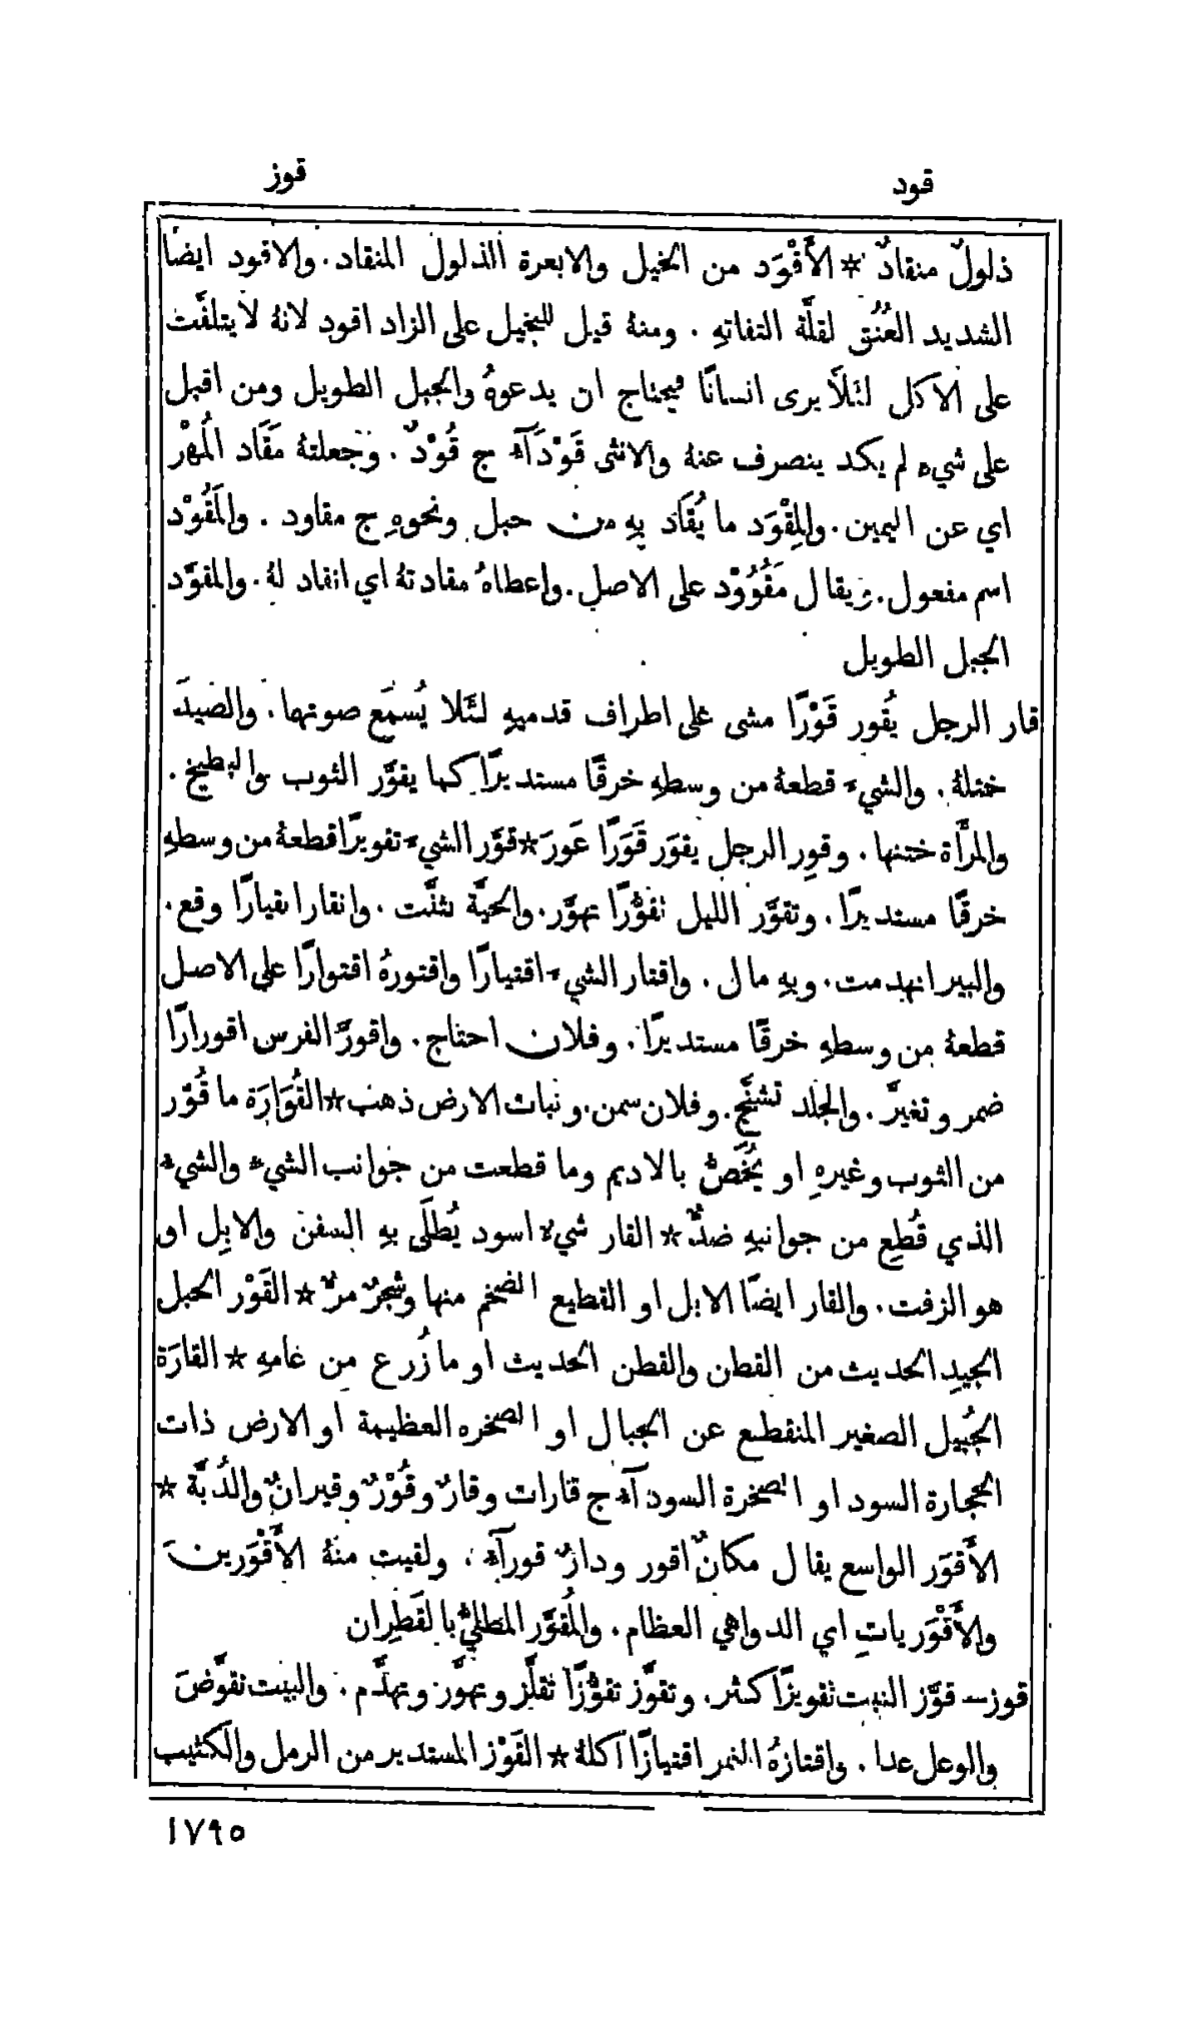 قود
قوز
ذلولٌ منقادٌ * الأَقْوَد من الخيل والابعرة الذلول المنقاد. والاقود ايضًا
الشديد العُنُق لقلَّة التفاتهِ. ومنهُ قيل للبخيل على الزاد اقود لانهُ لا يتلفَّت
على الاكل لئلَّا يرى انسانًا فيحتاج ان يدعوهُ والجبل الطويل ومن اقبل
على شيءٍ لم يكد ينصرف عنهُ والانثى قَوْدَآءُ ج قُوْدٌ. وجعلتهُ مَقَاد المُهْر
اي عن اليمين. والمِقْوَد ما يُقَاد بهِ من حبل ونحوهِ ج مقاود. والمَقُوْد
اسم مفعول. ويقال مَقْوُوْد على الاصل. واعطاهُ مقادتهُ اي انقاد لهُ. والمقوَّد
الجبل الطويل
قار الرجل يَقُور قَوْرًا مشى على اطراف قدميهِ لئَلا يُسمَع صوتها. والصيدَ
ختلهُ. والشيءَ قطعهُ من وسطهِ خرقًا مستديرًا كما يقوَّر الثوب والبطيخ.
والمرأَة ختنها. وقوِر الرجل يقوَر قَوَرًا عَورَ * قوَّر الشيءَ تقويرًا قطعهُ من وسطهِ
خرقًا مستديرًا. وتقوَّر الليل تقوُّرًا تهوَّر. والحيَّة تثنَّت. وانقار انقيارًا وقع.
والبير انهدمت. وبهِ مال. واقتار الشيءَ اقتيارًا واقتورهُ اقتوارًا على الاصل
قطعهُ من وسطهِ خرقًا مستديرًا. وفلان احتاج. واقورَّ الفرس اقورارًا
ضمر وتغيَّر. والجلد تشنَّج. وفلان سمن. ونبات الارض ذهب * القُوَارَة ما قُوِّر
من الثوب وغيرهِ او يُخَصُّ بالاديم وما قطعت من جوانب الشيءِ والشيءُ
الذي قُطِع من جوانبهِ ضدٌّ * القار شيءٌ اسود يُطلَى بهِ السفن والابِل او
هو الزفت. والقار ايضًا الابل او القطيع الضخم منها وشجرٌ مرٌّ * القَوْر الحبل
الجيد الحديث من القطن والقطن الحديث او ما زُرع من عامهِ * القارَة
الجُبَيل الصغير المنقطع عن الجبال او الصخره العظيمة او الارض ذات
الحجارة السود او الصخرة السودآء ج قارات وقارٌ وقُوْرٌ وقيرانٌ والدُّبَّة *
الأَقوَر الواسع يقال مكانٌ اقور ودارٌ قورآءُ. ولقيت منهُ الأَقْوَرينَ
والأَقْوَرياتِ اي الدواهي العظام. والمُقوَّر المطليُّ بالقَطِران
قوز– قوَّز النبت تقويزًا كثر. وتقوَّز تقوُّزًا تقلَّز وتهوَّز وتهدَّم. والبيت تقوَّضَ
والوعل عدا. واقتازهُ النمر اقتيازًا اكلهُ * القَوْز المستدير من الرمل والكثيب
١٧٩٥